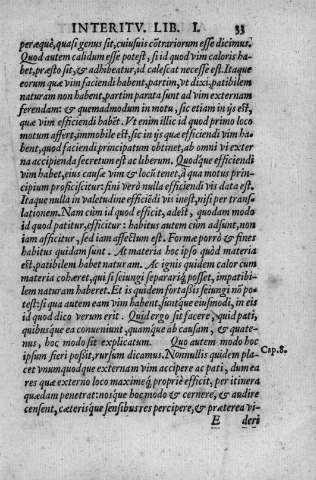 INTERITV. LIB. I. 33
peræquè, quasi genus sit, cuiusuis cōtrariorum esse dicimus.
Quod autem calidum esse potest, si id quod vim caloris ha-
bet, præsto sit, & adhibeatur, id calescat necesse est. Itaque
eorum quæ vim faciendi habent, partim, vt dixi, patibilem
naturam non habent, partim parata sunt ad vim externam
ferendam: & quemadmodum in motu, sic etiam in ijs est,
quæ vim efficiendi habēt. Vt enim illic id quod primo loco
motum affert, immobile est, sic in ijs quæ efficiendi vim ha-
bent, quod faciendi principatum obtinet, ab omni vi exter
na accipienda secretum est ac liberum. Quodque efficiendi
vim habet, eius causæ vim & locū tenet, à qua motus prin-
cipium proficiscitur: fini verò nulla efficiendi vis data est.
Itaque nulla in valetudine efficiēdi vis inest, nisi per trans-
lationem. Nam cùm id quod efficit, adest, quodam modo
id quod patitur, efficitur: habitus autem cùm adsunt, non
iam afficitur, sed iam affectum est. Formæ porrò & fines
habitus quidam sunt. At materia hoc ipso quòd materia
est, patibilem habet naturam. Ac ignis quidem calor cùm
materia cohæret, qui si seiungi separariq́ posset, impatibi-
lem naturam haberet. Et is quidem fortaßis seiungi nō po-
test: si qua autem eam vim habent, suntque eiusmodi, in eis
id quod dico verum erit. Quid ergo sit facere, quid pati,
quibusque ea conueniunt, quamque ab causam, & quate-
nus, hoc modo sit explicatum. Quo autem modo hoc
ipsum fieri possit, rursum dicamus. Nonnullis quidem pla- Cap. 8.
cet vnumquodque externam vim accipere ac pati, dum ea
res quæ externo loco maximeq́ propriè efficit, per itinera
quædam penetrat: nosque hoc modo & cernere, & audire
censent, cæterisque sensibus res percipere, & præterea vi-
E deri